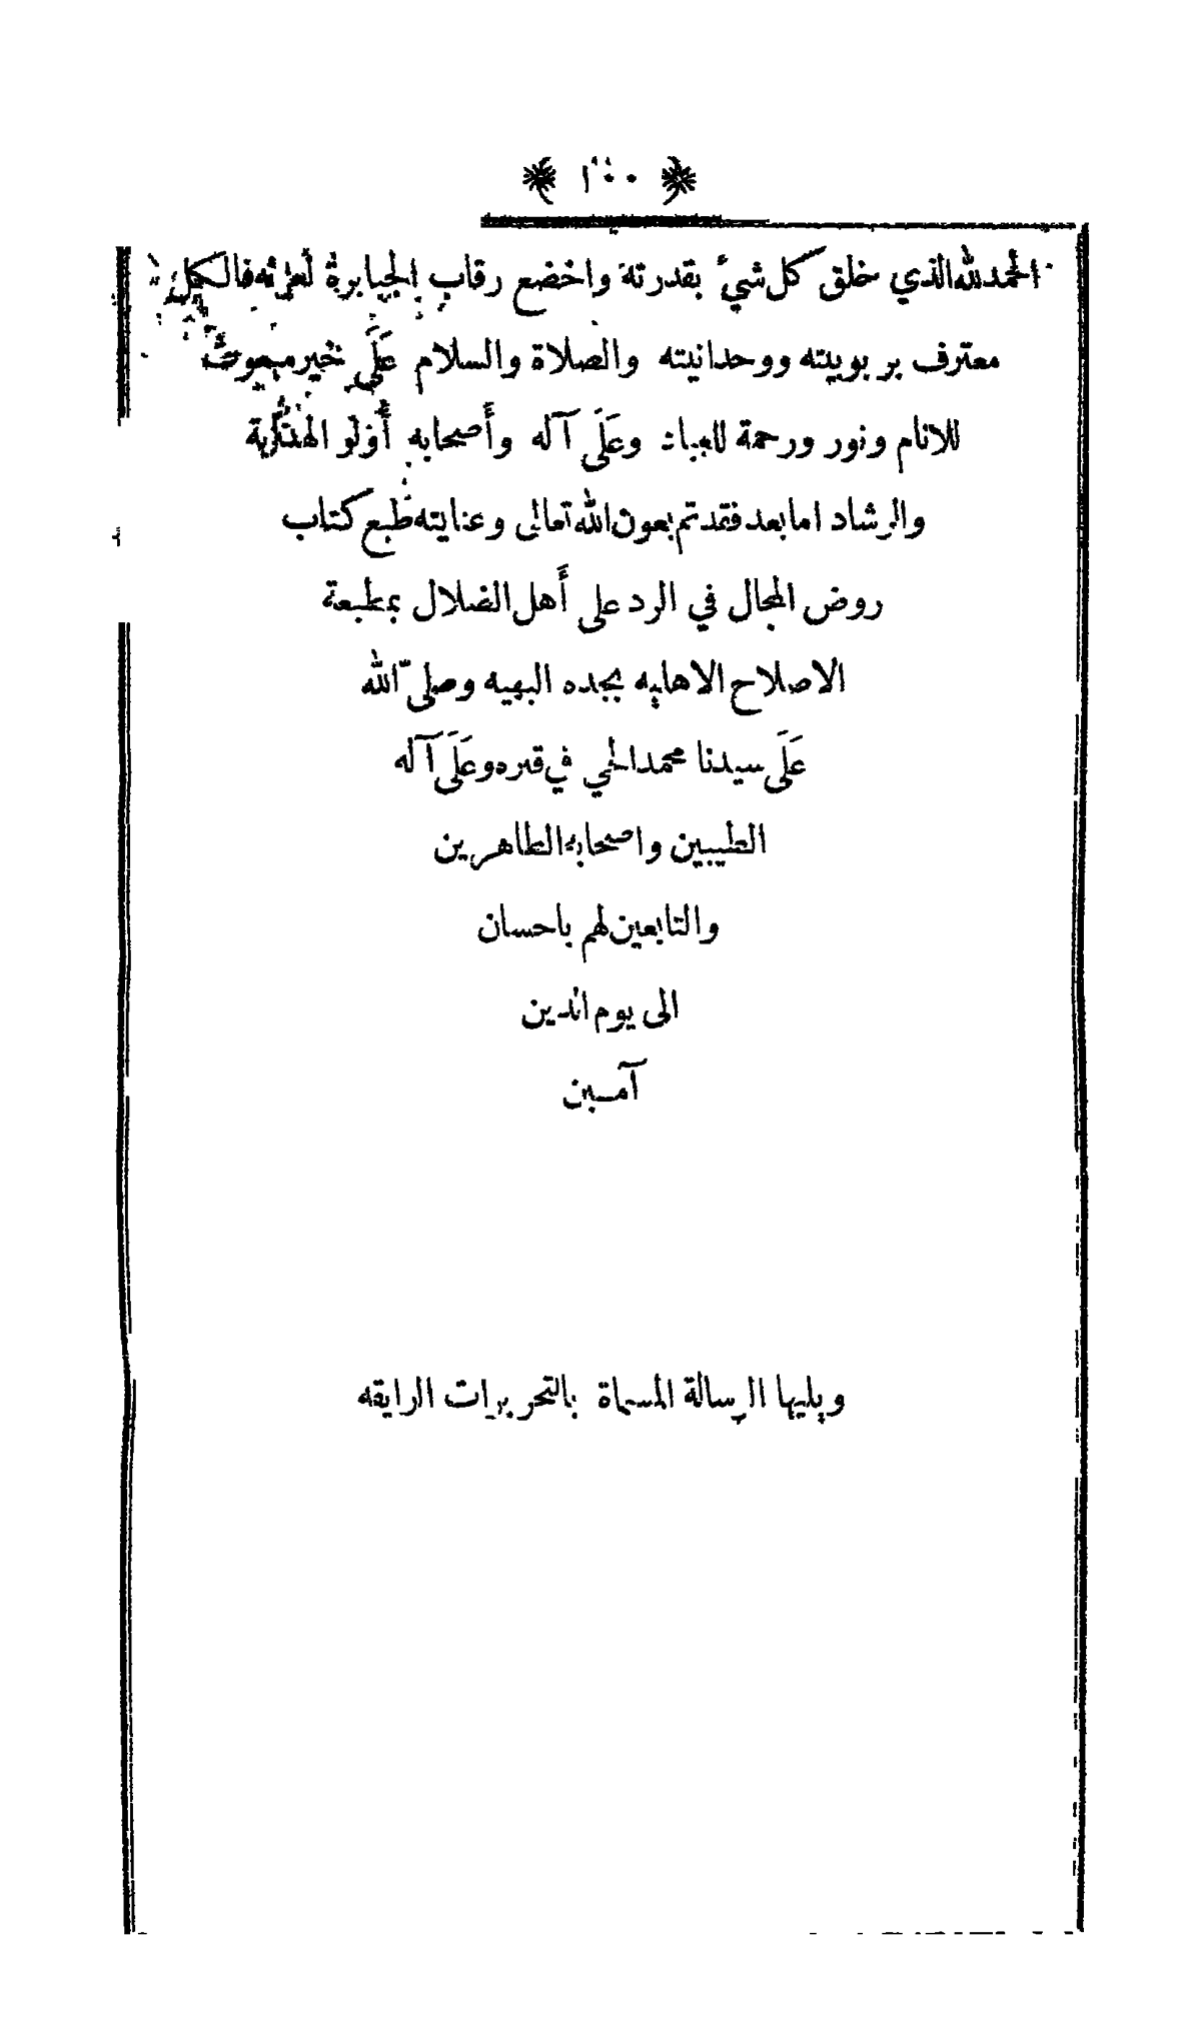 ١٠٠
الحمد لله الذي خلق كل شيء بقدرته واخضع رقاب الجبابرة لعزته فالكل
معترف بربوبيته ووحدانيته والصلاة والسلام عَلَى خير مبعوث
للانام ونور ورحمة للعباد وعَلَى آله وأَصحابه أُولو الهداية
والرشاد اما بعد فقد تم بعون الله تعالى وعنايته طبع كتاب
روض المجال في الرد على أَهل الضلال بمطبعة
الاصلاح الاهليه بجده البهيه وصلى الله
عَلَى سيدنا محمد الحي في قبره وعَلَى آله
الطيبين واصحابه الطاهرين
والتابعين لهم باحسان
الى يوم الدين
آمــين
ويليها الرسالة المسماة بالتحريرات الرايقه